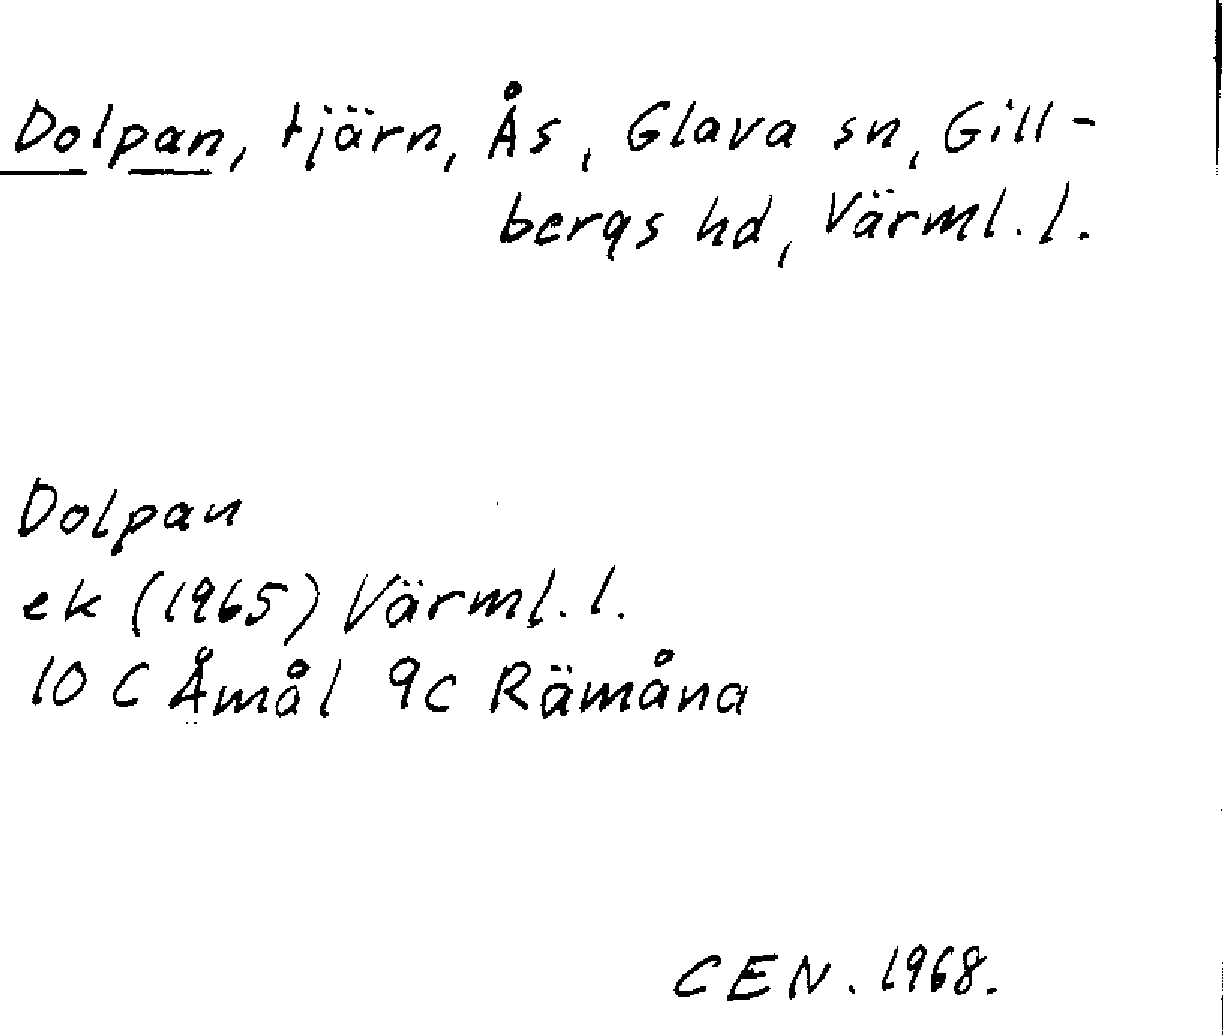 Dolpan, tjärn, Ås, Glava sn, Gill-
bergs hd, Värml. l.
Dolpan
ek (1965) Värml. l.
10 C Åmål 9c Rämåna
CEN. 1968.